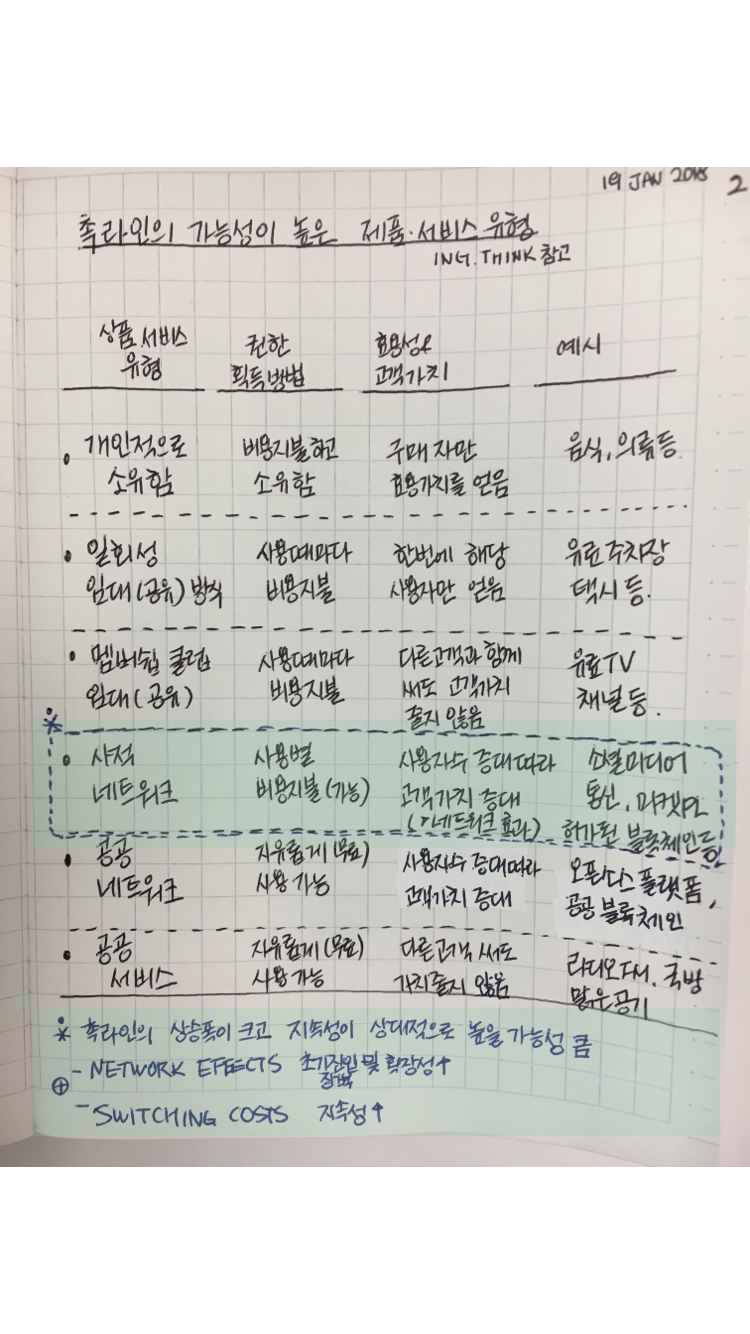 19 JAN 2018 2
촉라인의 가능성이 높은 제품·서비스 유형
ING.THINK 참고
상품 서비스 권한 효용성& 예시
유형 획득방법 고객가치
• 개인적으로 비용지불하고 구매자만 음식, 의류등
소유함 소유함 효용가치를 얻음
• 일회성 사용때마다 한번에 해당 유료주차장
임대(공유)방식 비용지불 사용자만 얻음 택시등.
• 멤버쉽 클럽 사용때마다 다른고객과 함께 유료TV
임대(공유) 비용지불 써도 고객가치 채널등.
줄지 않음
※
• 사적 사용별 사용자수 증대따라 소셜미디어
네트워크 비용지불(가능) 고객가치 증대 통신, 마켓PL
("네트워크 효과) 허가된 블록체인등
• 공공 자유롭게(무료) 사용자수 증대따라 오픈소스 플랫폼,
네트워크 사용가능 고객가치 증대 공공 블록체인
• 공공 자유롭게(무료) 다른고객 써도 라디오 국방
서비스 사용가능 가치줄지 않음 맑은공기
※ 촉라인의 상승폭이 크고 지속성이 상대적으로 높을 가능성 큼
- NETWORK EFFECTS 초기진입 및 확장성↑
장벽
⊕
- SWITCHING COSTS 지속성↑